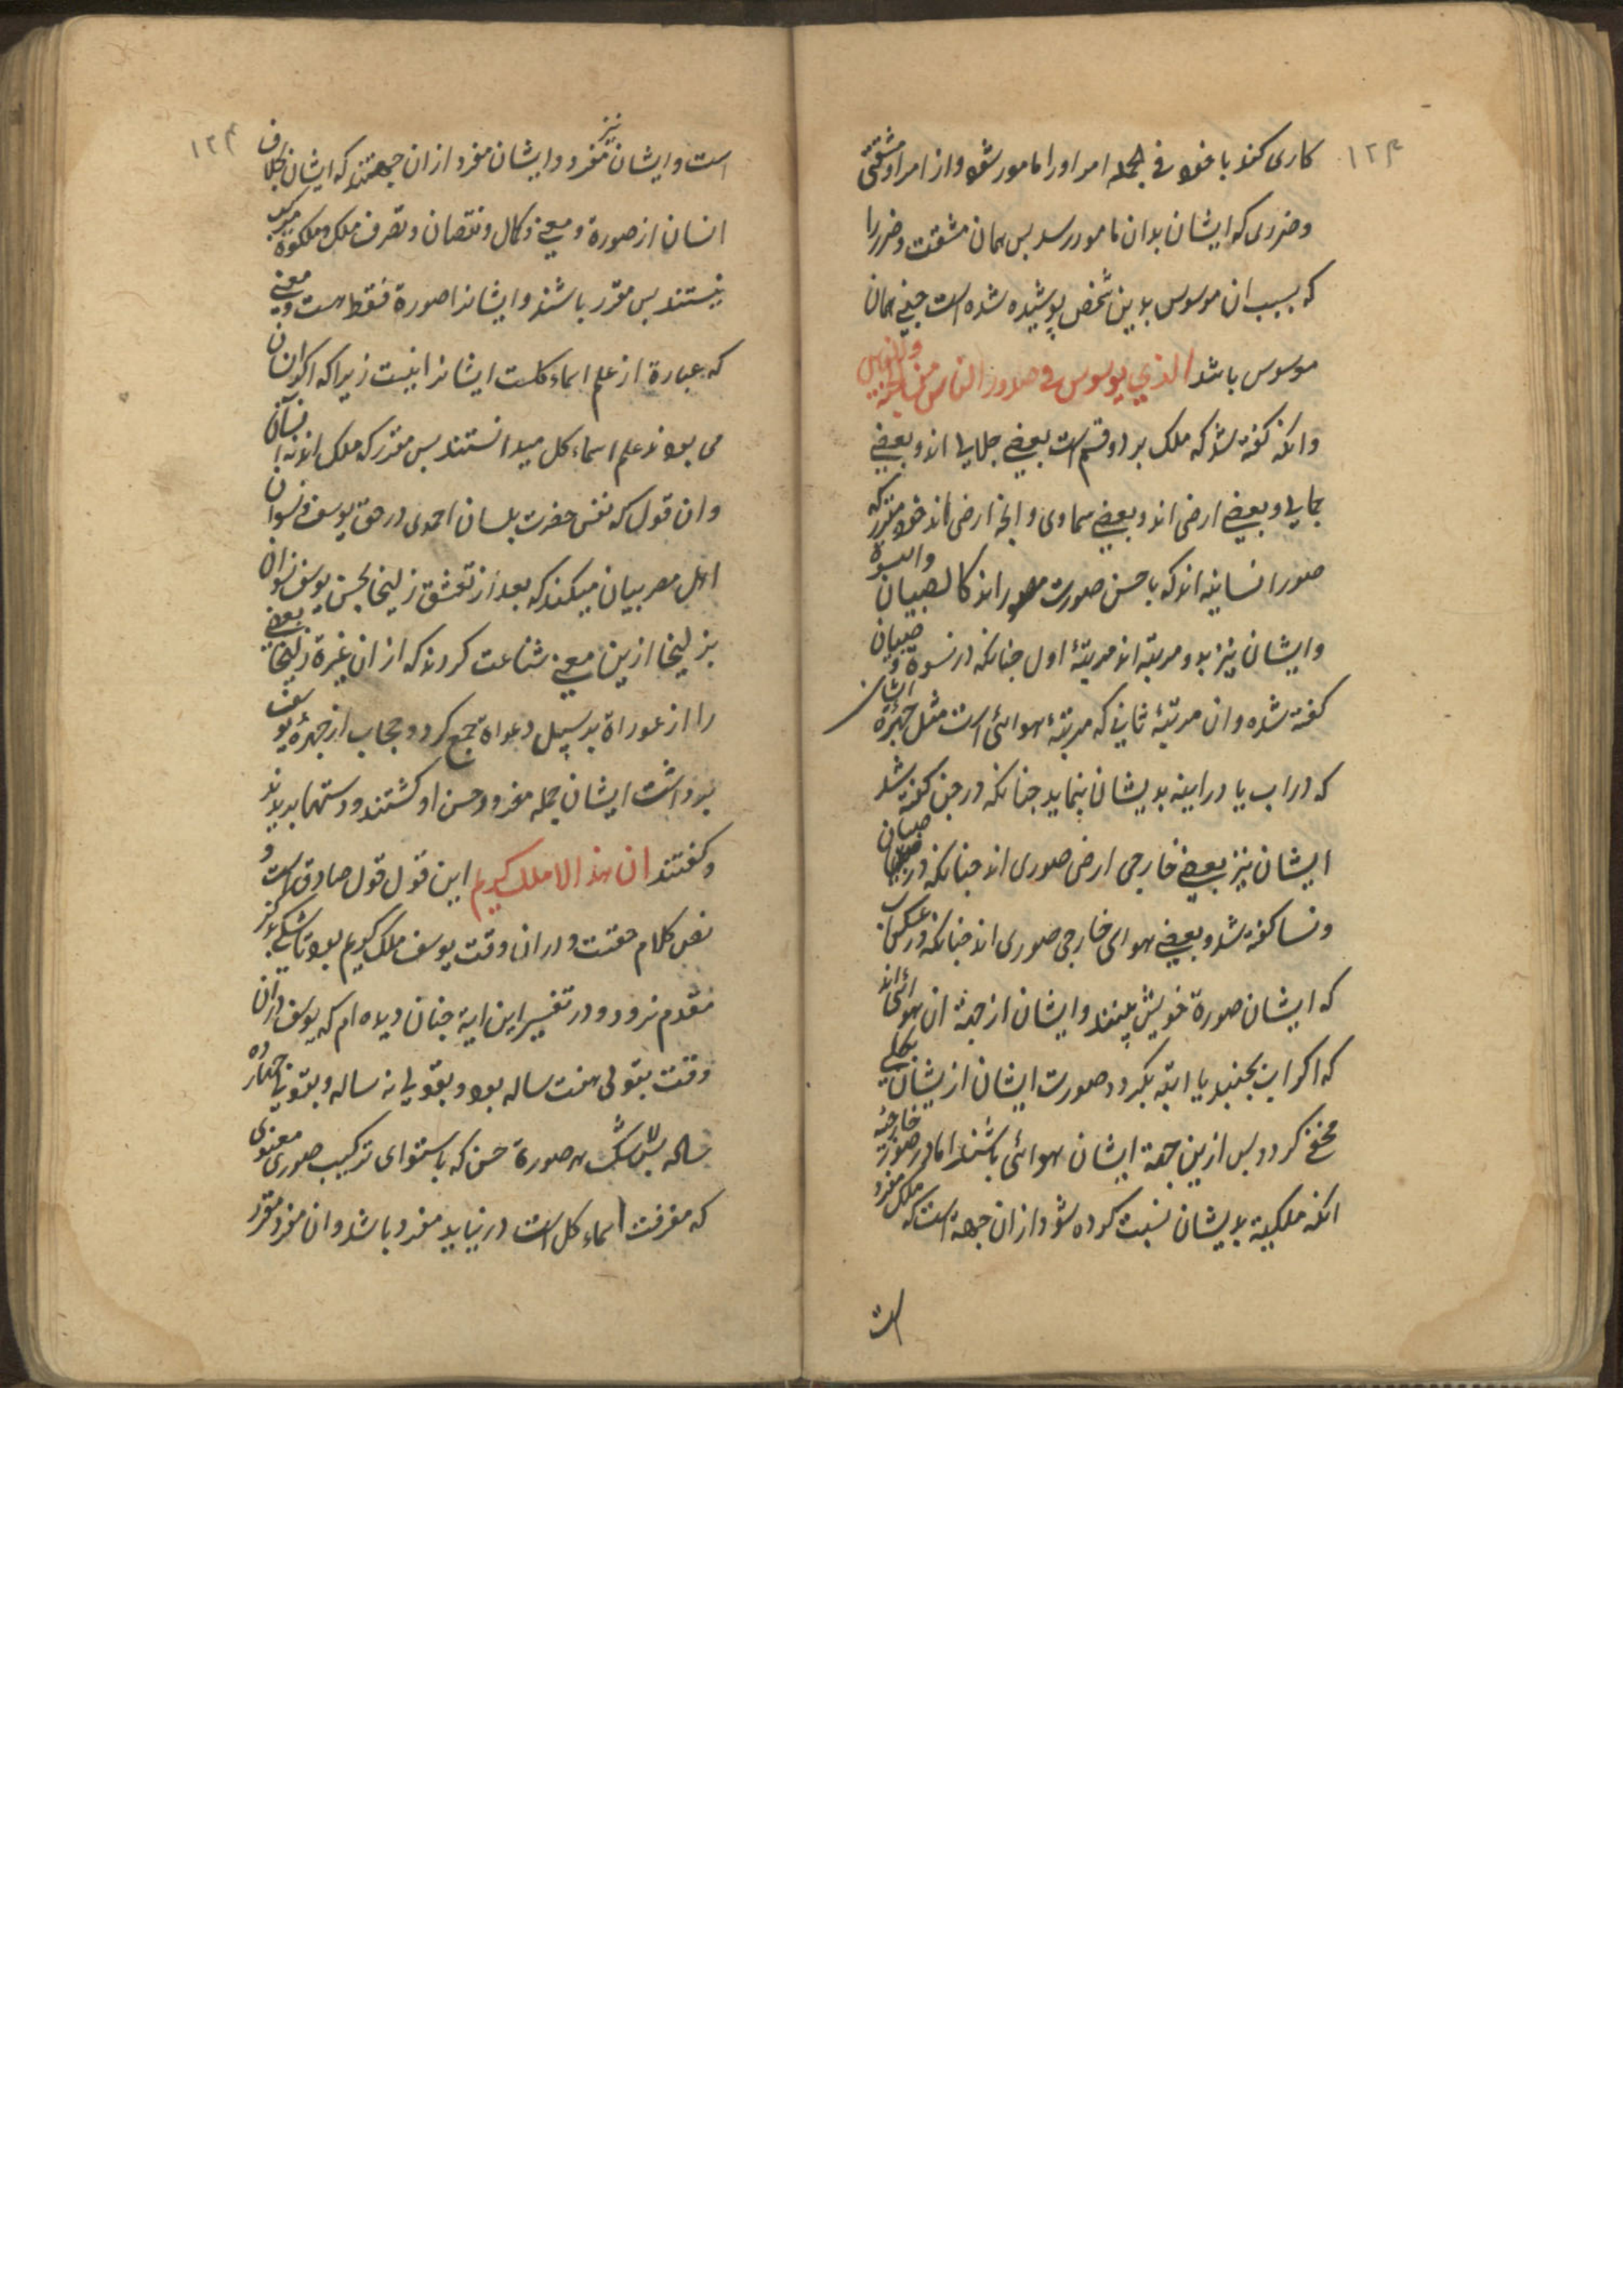 ۱۲۴
کاری کند با خود فی الجمله امر او را مامور شود و از امر او مشقتی
و ضرری که ایشان بدان مامور رسد بس همان مشقت و ضرر را
که بسبب ان موسوس بدین شخص پوشیده شده است جنی همان
موسوس باشد الذي یوسوس فی صدور الناس من الجنة والناس
وانکه کفته شد که ملک بر دو قسم است بعضی جلالی اند و بعضی
جمالی و بعضی ارضی اند و بعضی سماوی و انچه ارضی اند خود مقرر که
صور انسانیه اند که با حسن صورت مصور اند کالصبیان والنسوة
و ایشان نیز بدو مرتبه اند مرتبۀ اول جنانکه در نسوة و صبیان
کفته شده وان مرتبۀ ثانی که مرتبۀ هوائی است مثل چهرۀ ایشان
که در اب یا در اینه بدیشان بنماید جنانکه در جن کفته شد
ایشان نیز بعضی خارجی ارضی صوری اند جنانکه در صبیان
ونسا کفته شد و بعضی هوای خارجی صوری اند جنانکه در عکس اب
که ایشان صورة خویش بینند و ایشان از جهة ان هوائی اند
که اکر اب بجنبد یا اینه بکردد صورت ایشان از یشان بکلی
مخفی کردد بس ازین جهة ایشان هوائی باشند اما در صورة خارجیه
انکه ملکیة بدیشان نسبت کرده شود از ان جهة است که ملک مفرد
است
۱۲۴
است و ایشان نیز مفرد و ایشان مفرد از ان جهتند که ایشان بخلاف
انسان از صورة و معنی و کمال و نقصان و تصرف ملک و ملکوة مرکب
نیستند بس مقرر باشند و ایشانرا صورة فقط هست و معنی
که عبارة از علم اسماء کلست ایشانرا نیست زیرا که اکر ان ان
می بود علم اسماء کل میدانستند بس مقرر که ملک اند نه انسان
وان قول که نفس حضرت بلسان احمدی در حق یوسف و نسوان
اهل مصر بیان میکند که بعد از تعشق زلیخا بحسن یوسف نسوان
بزلیخا ازین معنی شناعت کردند که از ان غیرة زلیخا بعضی
را از عوراة بر سبیل دعواة جمع کرد و حجاب از چهرۀ یوسف
برداشت ایشان جمله مفرد و حسن او کشتند و دستها ببریدند
وکفتند ان هذا الا ملك كريم این قول قول صادق است و
نص کلام حقست و در ان وقت یوسف ملک کریم بود تا شکی بدین
مقدم نرود و در تفسیر این ایة جنان دیده ام که یوسف در ان
وقت بقولی هفت ساله بود و بقولی نه ساله و بقولی جهارده
ساله بلا شک هر صورة حسن که باستوای ترکیب صوری معنوی
که معرفت اسماء کل است در نیاید مفرد باشد و ان مفرد مقرر